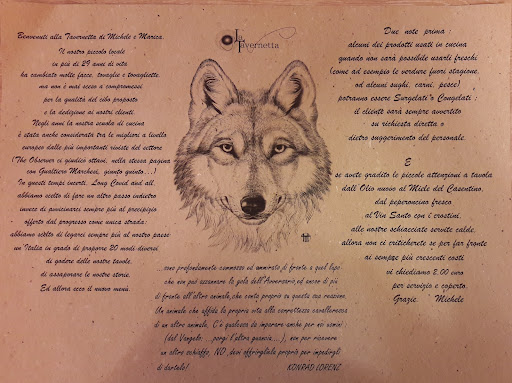 La
Tavernetta
Benvenuti alla Tavernetta di Michele e Marica.
Il nostro piccolo locale
in più di 29 anni di vita
ha cambiato molte facce, tovaglie e tovagliette
ma non è mai sceso a compromessi
per la qualità del cibo proposto
e la dedizione ai nostri clienti.
Negli anni la nostra scuola di cucina
è stata anche considerata tra le migliori a livello
europeo dalle più importanti riviste del settore
(The Observer ci giudicò ottavi, nella stessa pagina
con Gualtiero Marchesi, giunto quinto...)
In questi tempi incerti, Long Covid and all,
abbiamo scelto di fare un altro passo indietro
invece di avvicinarci sempre più al precipizio
offerto dal progresso come unica strada:
abbiamo scelto di legarci sempre più al nostro paese
un Italia in grado di proporre 20 modi diversi
di godere delle nostre tavole,
di assaporare le nostre storie.
Ed allora ecco il nuovo menù.
Due note prima:
alcuni dei prodotti usati in cucina
quando non sarà possibile usarli freschi
(come ad esempio le verdure fuori stagione,
od alcuni sughi, carni, pesce)
potranno essere Surgelati o Congelati.
il cliente sarà sempre avvertito
su richiesta diretta o
dietro suggerimento del personale.
E
se avete gradito le piccole attenzioni a tavola
dall'Olio nuovo al Miele del Casentino,
dal peperoncino fresco
al Vin Santo con i crostini,
alle nostre schiacciate servite calde,
allora non ci criticherete se per far fronte
ai sempre più crescenti costi
vi chiediamo 2.00 euro
per servizio e coperto.
Grazie. Michele
...sono profondamente commosso ed ammirato di fronte a quel lupo
che non può azzannare la gola dell'Avversario, ed ancor di più
di fronte all'altro animale, che conta proprio su questa sua reazione.
Un animale che affida la propria vita alla correttezza cavalleresca
di un altro animale. C'è qualcosa da imparare anche per noi uomini
(dal Vangelo: ...porgi l'altra guancia...), non per ricevere
un altro schiaffo, NO, devi offrirgliela proprio per impedirgli
di dartelo!
KONRAD LORENZ